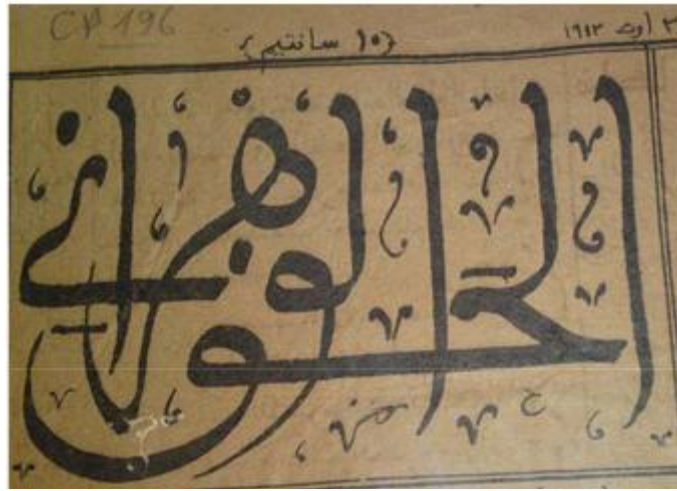 CP 196
سانتيم
اوت ١٩١٢
الحق الوهراني